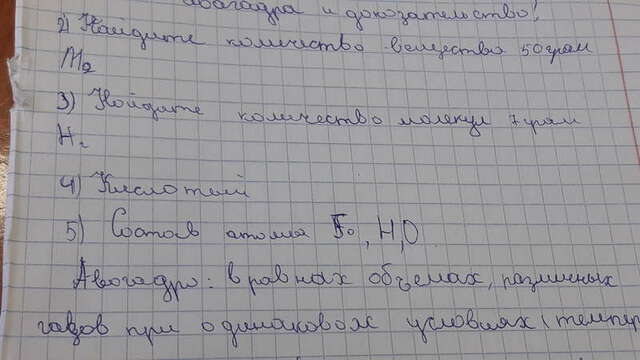 авогадра и доказательство!
2) Найдите количество вещества 50 грам
Mg
3) Найдите количество молекул 7 грам
H₂
4) Кислотый
5) Состав атома Fe, H, O
Авогадро: в равных объемах, различных
газов при одинаковом условиях (темпер